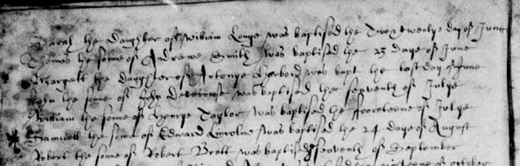 Sarah the daughter of William Longe was baptised the Two & twentye day of June
Thomas the sonne of Andrewe Smith was baptised the 23 daye of June
Margrett the daughter of Antonye was bapt the last day of June
John the sonne of John was baptised the seaventh of Julye
William the sonne of Taylor was baptised the foorteene of Julye
Samuell the sonne of Edward was baptised the 24 daye of August
Robert the sonne of Robert Brett was baptised seaventh of September
of October